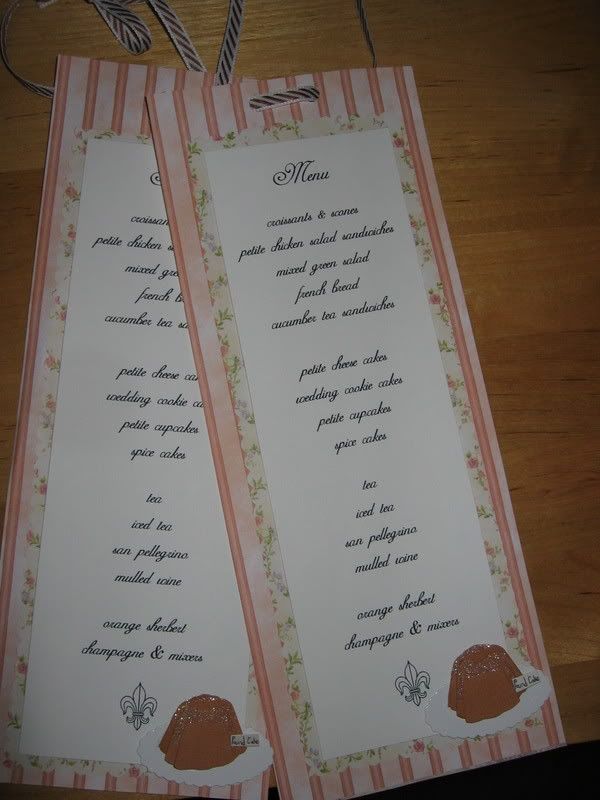 Menu
croissants & scones
petite chicken salad sandwiches
mixed green salad
french bread
cucumber tea sandwiches
petite cheese cakes
wedding cookie cakes
petite cupcakes
spice cakes
tea
iced tea
san pellegrino
mulled wine
orange sherbert
champagne & mixers
croissan
petite chicken s
mixed gre
french b
cucumber tea sa
petite cheese ca
wedding cookie ca
petite cupcakes
spice cakes
tea
iced tea
san pellegrino
mulled wine
orange sherbert
champagne & mixers
Cake
Cake